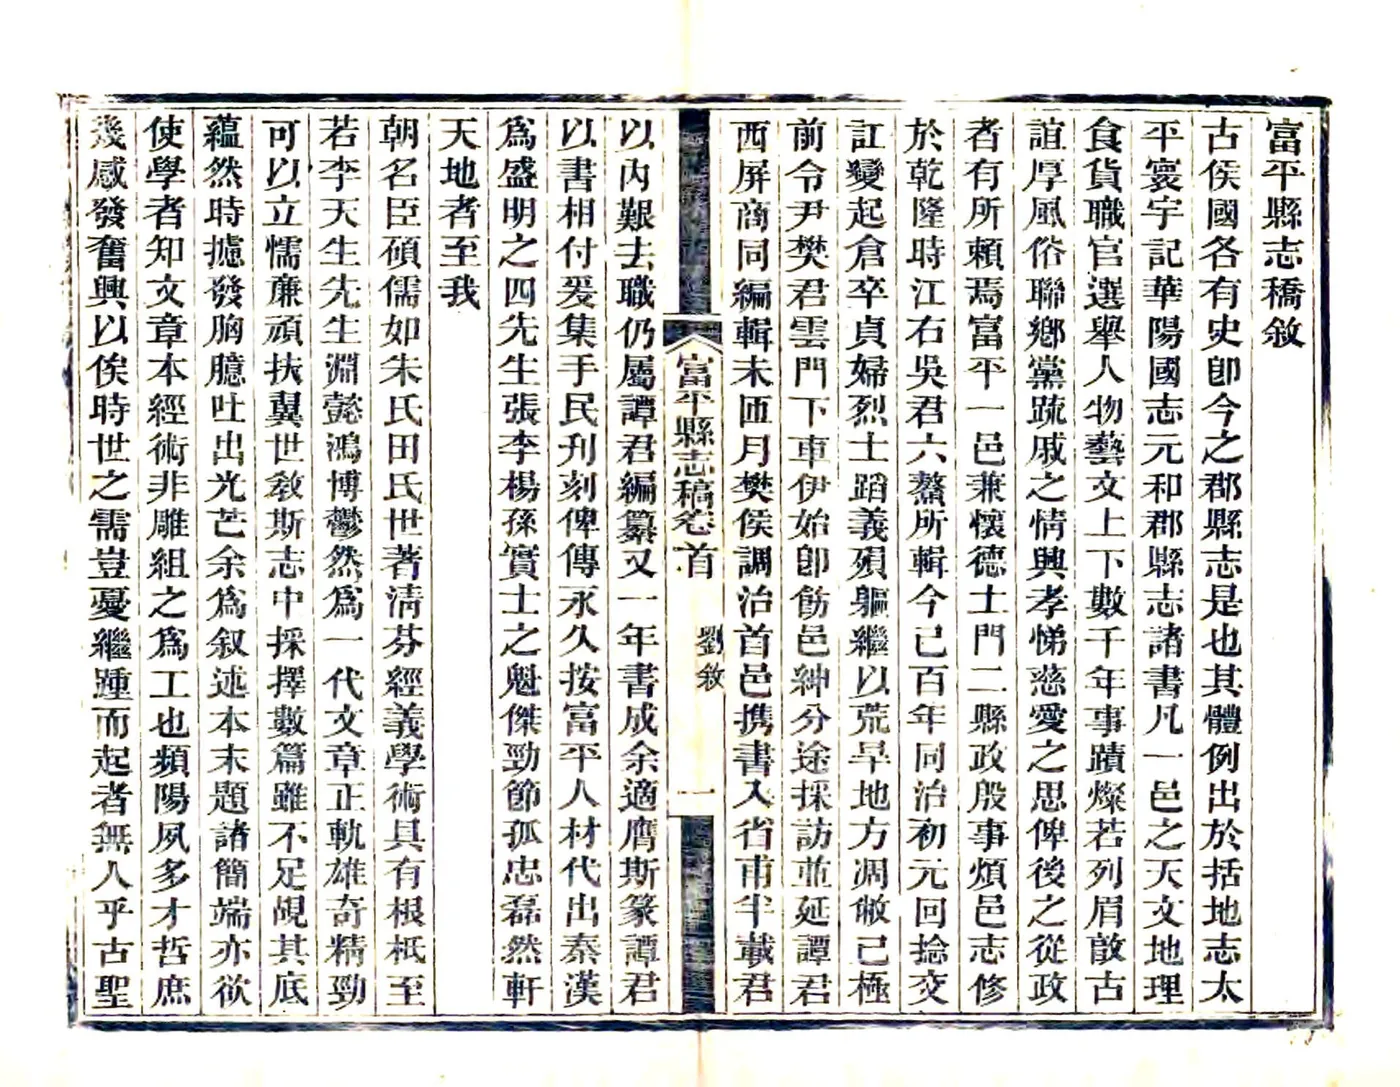 富平縣志稿敘
古侯國各有史卽今之郡縣志是也其體例出於括地志太
平寰宇記華陽國志元和郡縣志諸書凡一邑之天文地理
食貨職官選舉人物藝文上下數千年事蹟燦若列眉敳古
誼厚風俗聯鄉黨䟽戚之情興孝悌慈愛之思俾後之從政
者有所賴焉富平一邑兼懷德土門二縣政殷事煩邑志修
於乾隆時江右吳君六鰲所輯今已百年同治初元回捻交
訌變起倉卒貞婦烈士蹈義殞軀繼以荒旱地方凋敝已極
前令尹樊君雲門下車伊始卽飭邑紳分途採訪並延譚君
西屏商同編輯未匝月樊侯調治首邑携書入省甫半載君
富平縣志稿卷首
劉敘
一
以內艱去職仍屬譚君編纂又一年書成余適膺斯篆譚君
以書相付爰集手民刋刻俾傳永久按富平人材代出秦漢
爲盛明之四先生張李楊孫實士之魁傑勁節孤忠磊然軒
天地者至我
朝名臣碩儒如朱氏田氏世著清芬經義學術具有根柢至
若李天生先生淵懿鴻博鬱然爲一代文章正軌雄奇精勁
可以立懦廉頑扶翼世敎斯志中採擇數篇雖不足覘其底
蘊然時攄發胸臆吐出光芒余爲叙述本末題諸簡端亦欲
使學者知文章本經術非雕組之爲工也頻陽夙多才哲庶
幾感發奮興以俟時世之需豈憂繼踵而起者無人乎古聖